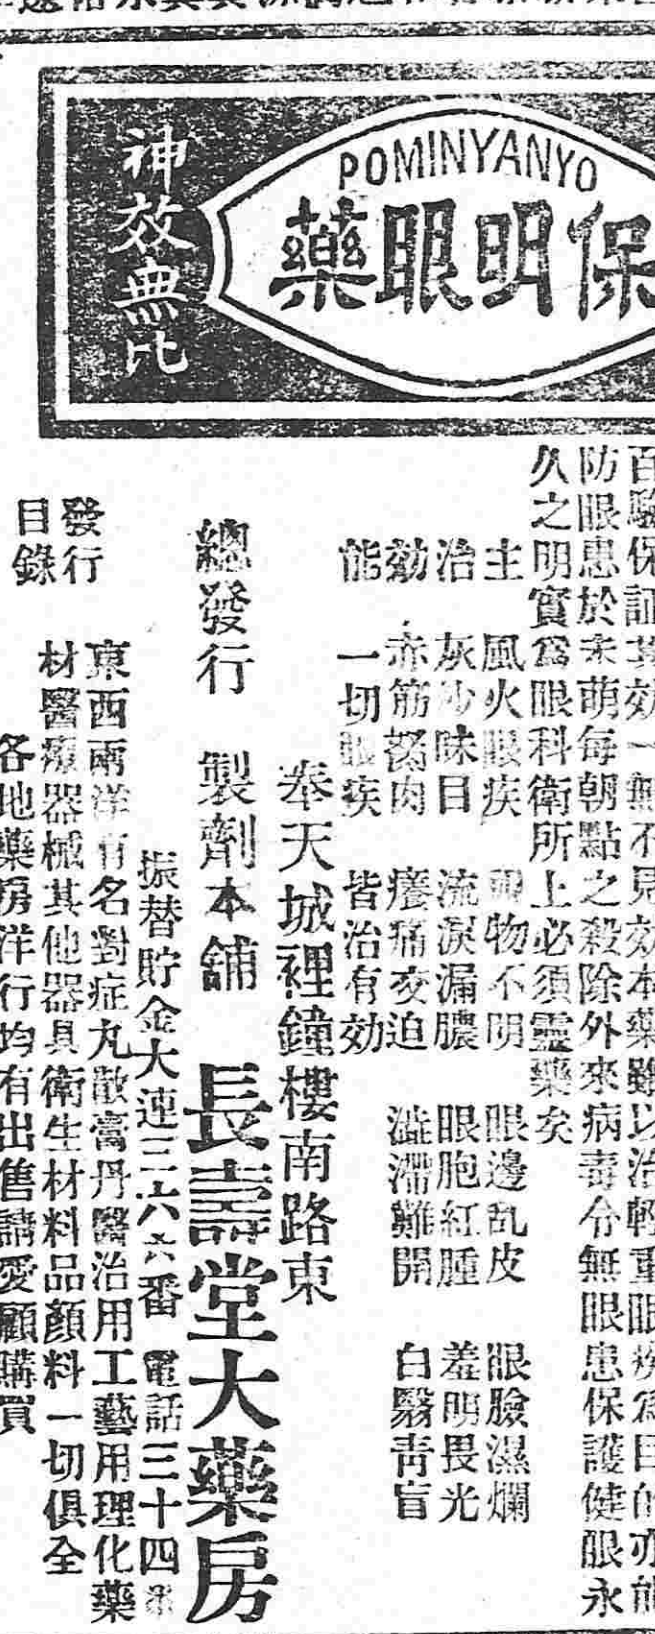 POMINYANYO
保明眼藥
神效無比
百驗保証其効一無不見効本藥雖以治輕重眼疾為目的亦能
防眼患於未萌每朝點之殺除外來病毒令無眼患保護健眼永
久之明實爲眼科衛所上必須靈藥矣
主治効能
風火眼疾 視物不明 眼邊乱皮 眼臉濕爛
灰沙昧目 流淚漏膿 眼胞紅腫 羞明畏光
赤筋努肉 癢痛交迫 澁滯難開 白翳靑盲
一切眼疾 皆治有効
奉天城裡鐘樓南路東
總發行 製劑本舖 長壽堂大藥房
振替貯金大連三六六番 電話三十四番
發行目錄
東西兩洋有名對症丸散膏丹醫治用工藝用理化藥
材醫療器械其他器具衛生材料品顏料一切俱全
各地藥房洋行均有出售請愛顧購買